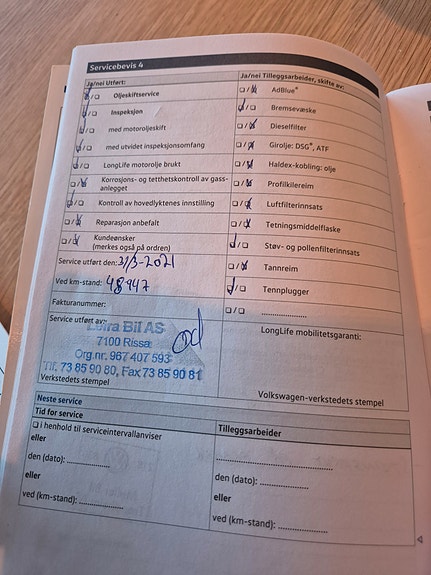 Servicebevis 4
Ja/nei Utført:
☑/☐ Oljeskiftservice
☑/☐ Inspeksjon
☑/☐ med motoroljeskift
☑/☐ med utvidet inspeksjonsomfang
☑/☐ LongLife motorolje brukt
☐/☑ Korrosjons- og tetthetskontroll av gass-
anlegget
☑/☐ Kontroll av hovedlyktenes innstilling
☐/☑ Reparasjon anbefalt
☐/☑ Kundeønsker
(merkes også på ordren)
Service utført den: 31/3-2021
Ved km-stand: 48947
Fakturanummer:
Service utført av:
Bil AS
7100 Rissa
Org.nr. 967 407 593
Tlf. 73 85 90 80, Fax 73 85 90 81
Verkstedets stempel
Ja/nei Tilleggsarbeider, skifte av:
☐/☑ AdBlue®
☑/☐ Bremsevæske
☐/☑ Dieselfilter
☐/☑ Girolje: DSG®, ATF
☐/☑ Haldex-kobling: olje
☐/☑ Profilkilereim
☐/☑ Luftfilterinnsats
☐/☑ Tetningsmiddelflaske
☑/☐ Støv- og pollenfilterinnsats
☐/☑ Tannreim
☑/☐ Tennplugger
☐/☐ ....................
LongLife mobilitetsgaranti:
Volkswagen-verkstedets stempel
Neste service
Tid for service
☐ i henhold til serviceintervallanviser
eller
den (dato): ....................
eller
ved (km-stand): ....................
Tilleggsarbeider
........................................
den (dato): ....................
eller
ved (km-stand): ....................